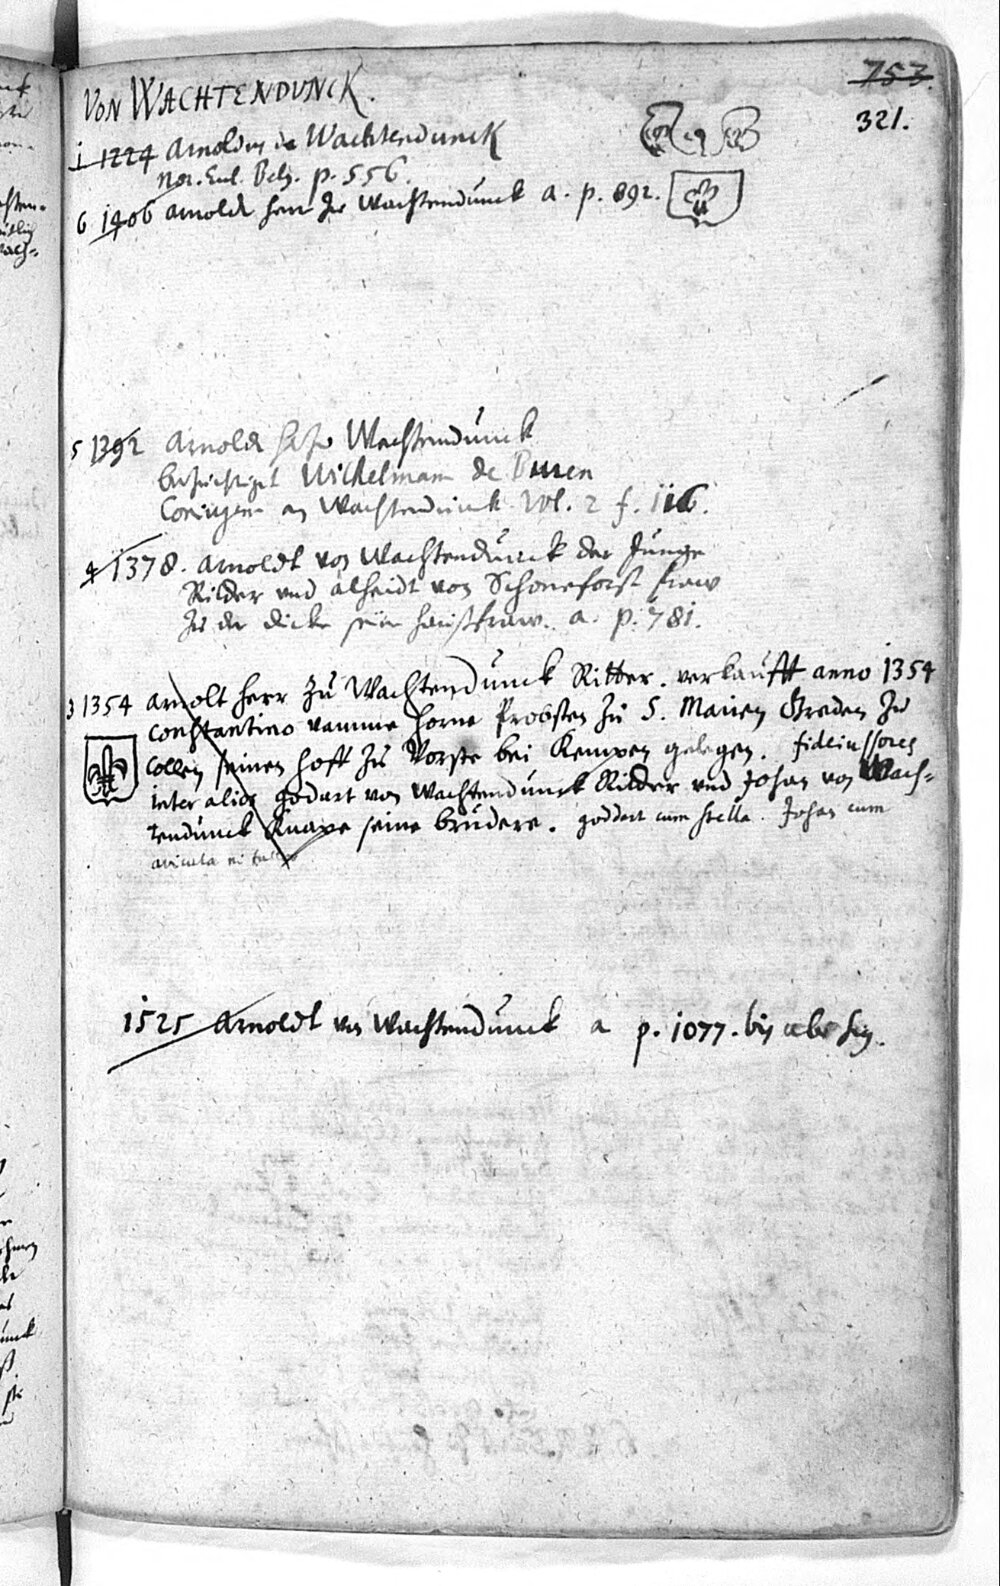 753.
321.
VON WACHTENDUNCK.
1 1224 Arnoldus de Wachtendunck
Not. Eccl. Belg. p. 556.
6 1406 Arnoldt herr zu Wachtendunck a. p. 892.
5 1392 Arnoldt zu Wachtendunck
Wilhelmum de Buren
an Wachtendunck vol. 2 f. 116.
4 1378. Arnoldt von Wachtendunck der Junge
Ridder und Alheidt von Schoneforst fraw
zu der Dicke seine hausfraw. a. p. 781.
3 1354 Arnolt herr zu Wachtendunck Ritter. verkaufft anno 1354
Constantino vamme horne Probsten zu S. Marien Greden zu
Collen seinen hoff zu Vorste bei Kempen gelegen. fideiussores
inter alios godart von Wachtendunck Ridder und Johan von Wach=
tendunck Knape seine brudere. goddert cum stella. Johan cum
avicula
1525 Arnoldt von Wachtendunck a p. 1077. bis